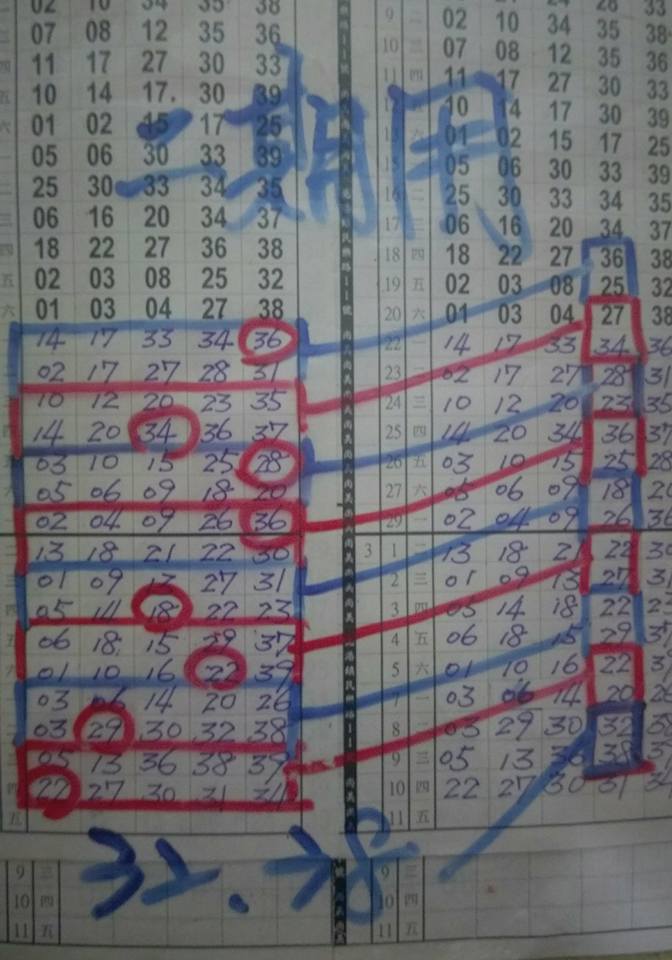 02 10 34 35 38
07 08 12 35 36
11 17 27 30 33
10 14 17. 30 39
01 02 15 17 25
05 06 30 33 39
25 30 33 34 35
06 16 20 34 37
18 22 27 36 38
02 03 08 25 32
01 03 04 27 38
14 17 33 34 36
02 17 27 28 31
10 12 20 23 35
14 20 34 36 37
03 10 15 25 28
05 06 09 18 20
02 04 09 26 36
13 18 21 22 30
01 09 13 27 31
05 14 18 22 23
06 18 15 29 37
01 10 16 22 39
03 06 14 20 26
03 29 30 32 38
05 13 36 38 39
22 27 30 31 34
二期用
9 二 02 10 34 35 38
10 三 07 08 12 35 36
11 四 11 17 27 30 33
10 14 17 30 39
01 02 15 17 25
05 06 30 33 39
16 二 25 30 33 34 35
17 三 06 16 20 34 37
18 四 18 22 27 36 38
19 五 02 03 08 25 32
20 六 01 03 04 27 38
22 一 14 17 33 34 36
23 二 02 17 27 28 31
24 三 10 12 20 23 35
25 四 14 20 34 36 37
26 五 03 10 15 25 28
27 六 05 06 09 18
29 一 02 04 09 26
3 1 二 13 18 21 22
2 三 01 09 13 27
3 四 05 14 18 22
4 五 06 18 15 29
5 六 01 10 16 22
7 一 03 06 14 20
8 二 03 29 30 32
9 三 05 13 36 38
10 四 22 27 30 31
11 五
32.38
9 三
10 四
11 五
9 三
10 四
11 五